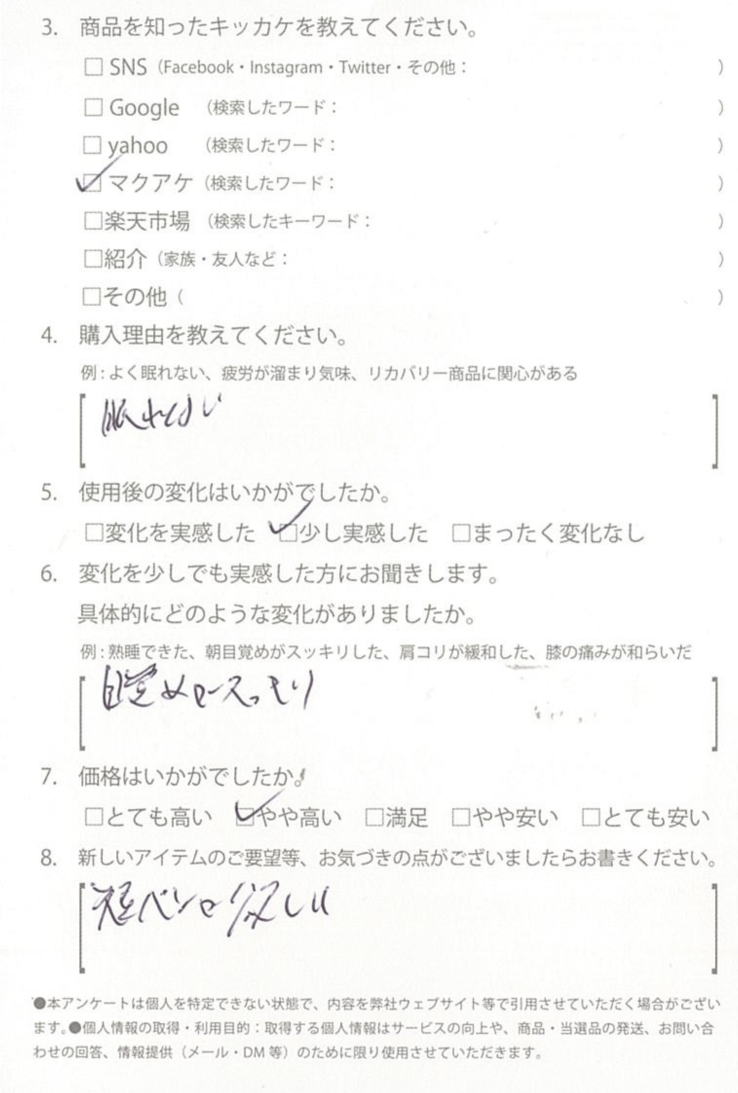 3. 商品を知ったキッカケを教えてください。
□ SNS（Facebook・Instagram・Twitter・その他： ）
□ Google （検索したワード： ）
□ yahoo （検索したワード： ）
☑ マクアケ（検索したワード： ）
□楽天市場（検索したキーワード： ）
□紹介（家族・友人など： ）
□その他（ ）
4. 購入理由を教えてください。
例：よく眠れない、疲労が溜まり気味、リカバリー商品に関心がある
眠れない
5. 使用後の変化はいかがでしたか。
□変化を実感した ☑少し実感した □まったく変化なし
6. 変化を少しでも実感した方にお聞きします。
具体的にどのような変化がありましたか。
例：熟睡できた、朝目覚めがスッキリした、肩コリが緩和した、膝の痛みが和らいだ
目覚めスッキリ
7. 価格はいかがでしたか。
□とても高い ☑やや高い □満足 □やや安い □とても安い
8. 新しいアイテムのご要望等、お気づきの点がございましたらお書きください。
短パン 欲しい
●本アンケートは個人を特定できない状態で、内容を弊社ウェブサイト等で引用させていただく場合がござい
ます。●個人情報の取得・利用目的：取得する個人情報はサービスの向上や、商品・当選品の発送、お問い合
わせの回答、情報提供（メール・DM 等）のために限り使用させていただきます。